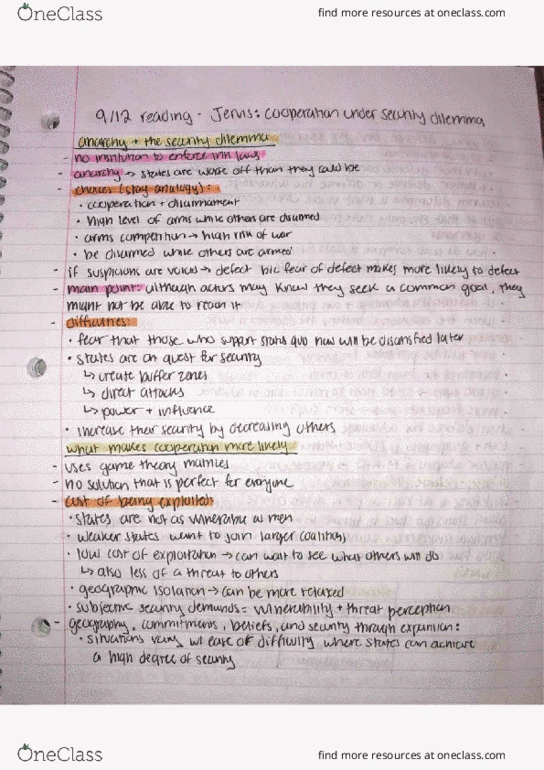 OneClass
find more resources at oneclass.com
9/12 reading - Jervis: cooperation under security dilemma
anarchy + the security dilemma
- no institution to enforce intl laws
- anarchy → states are worse off than they could be
- choices (stag analogy):
• cooperation + disarmament
• high level of arms while others are disarmed
• arms competition → high risk of war
• be disarmed while others are armed
- if suspicions are voiced → defect b/c fear of defect makes more likely to defect
- main point: although actors may know they seek a common goal, they
might not be able to reach it
- difficulties:
• fear that those who support status quo now will be dissatisfied later
• states are on quest for security
↳ create buffer zones
↳ direct attacks
↳ power + influence
• increase their security by decreasing others
what makes cooperation more likely
- uses game theory matrices
- no solution that is perfect for everyone
- cost of being exploited:
• states are not as vulnerable as men
• weaker states want to join larger coalitions
• low cost of exploitation → can wait to see what others will do
↳ also less of a threat to others
• geographic isolation → can be more relaxed
• subjective security demands = vulnerability + threat perception
- geography, commitments, beliefs, and security through expansion:
• situations vary w/ ease of difficulty where states can achieve
a high degree of security
OneClass
find more resources at oneclass.com